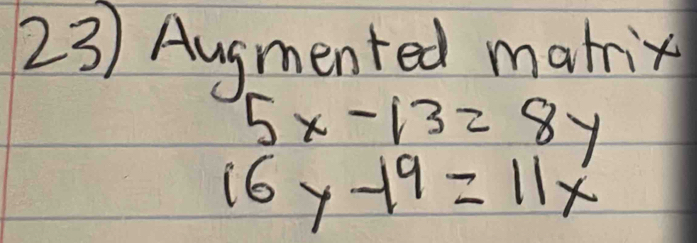 23) Augmented matrix
5x - 13 = 8y
16y - 19 = 11x